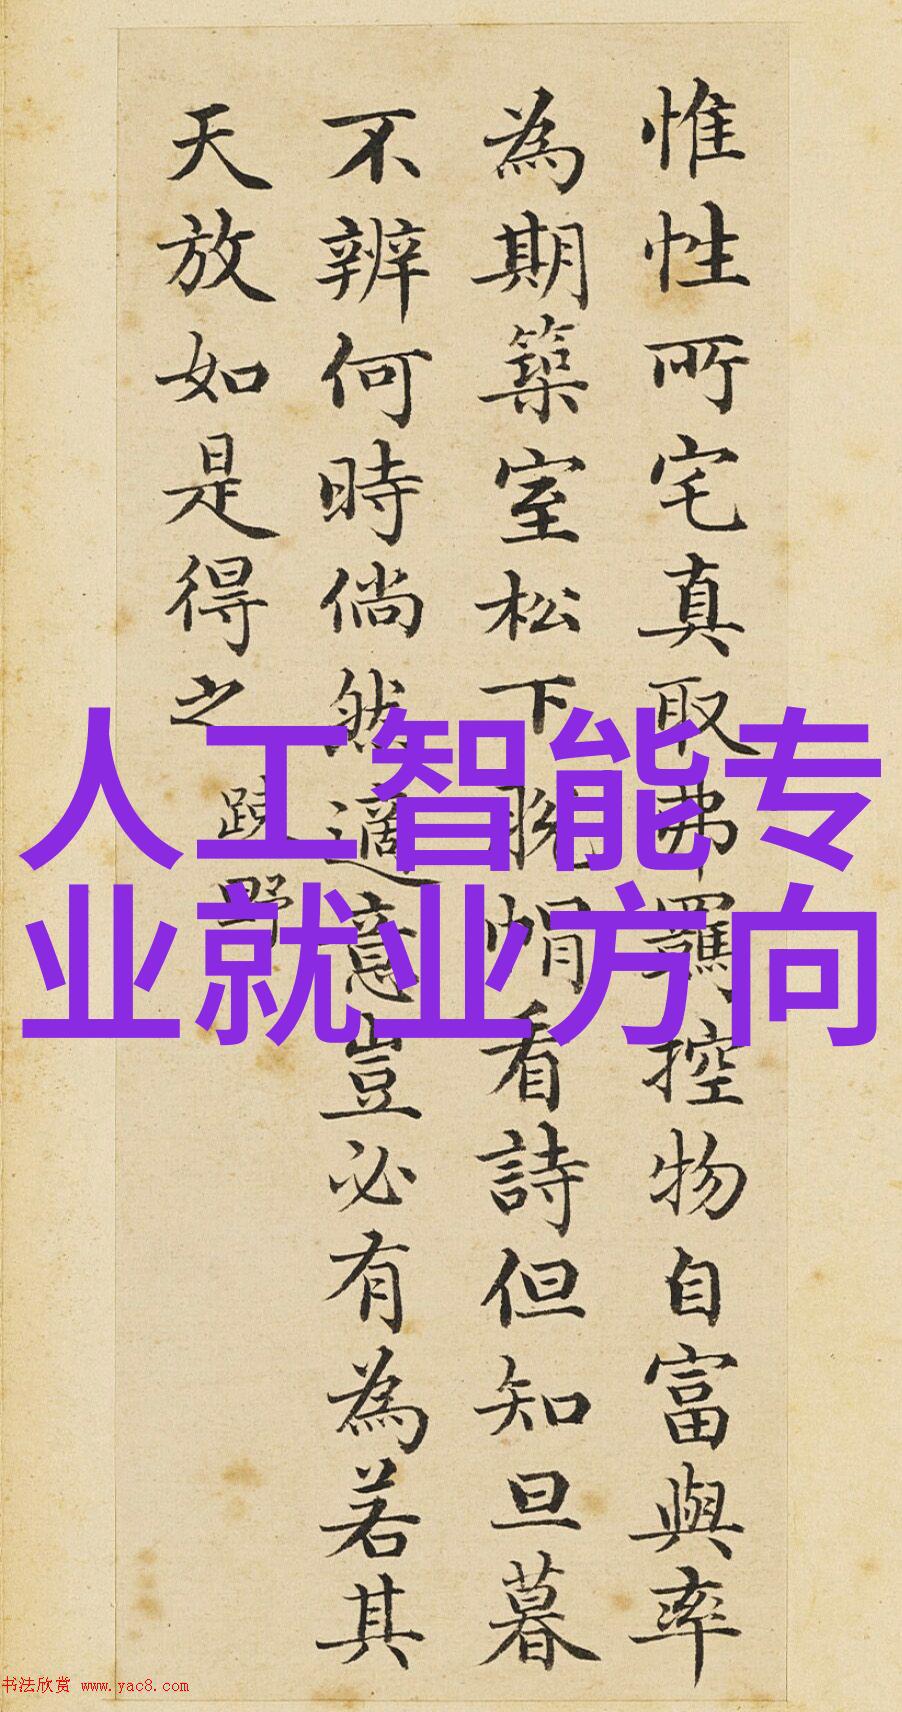 惟性所宅真取弗羈控物自富與率
為期築室松下脫帽看詩但知旦暮
不辨何時倘然適意豈必有為若其
天放如是得之
疎野
人工智能专
业就业方向
书法欣赏 www.yac8.com